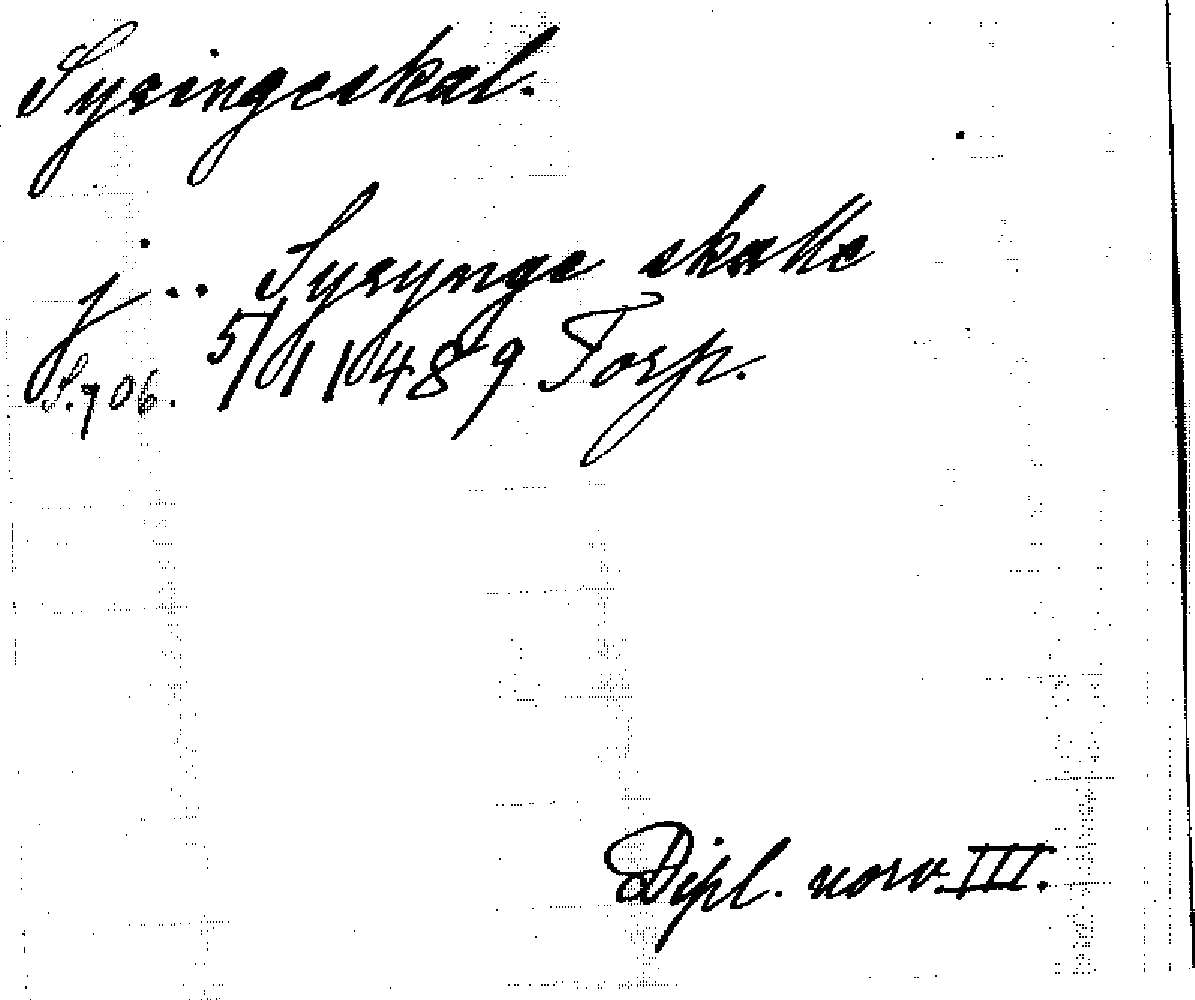 Syringeskal.
j .. Syrynge skatte
S. 706. 5/11 1489 Torp.
Dipl. norv. III.